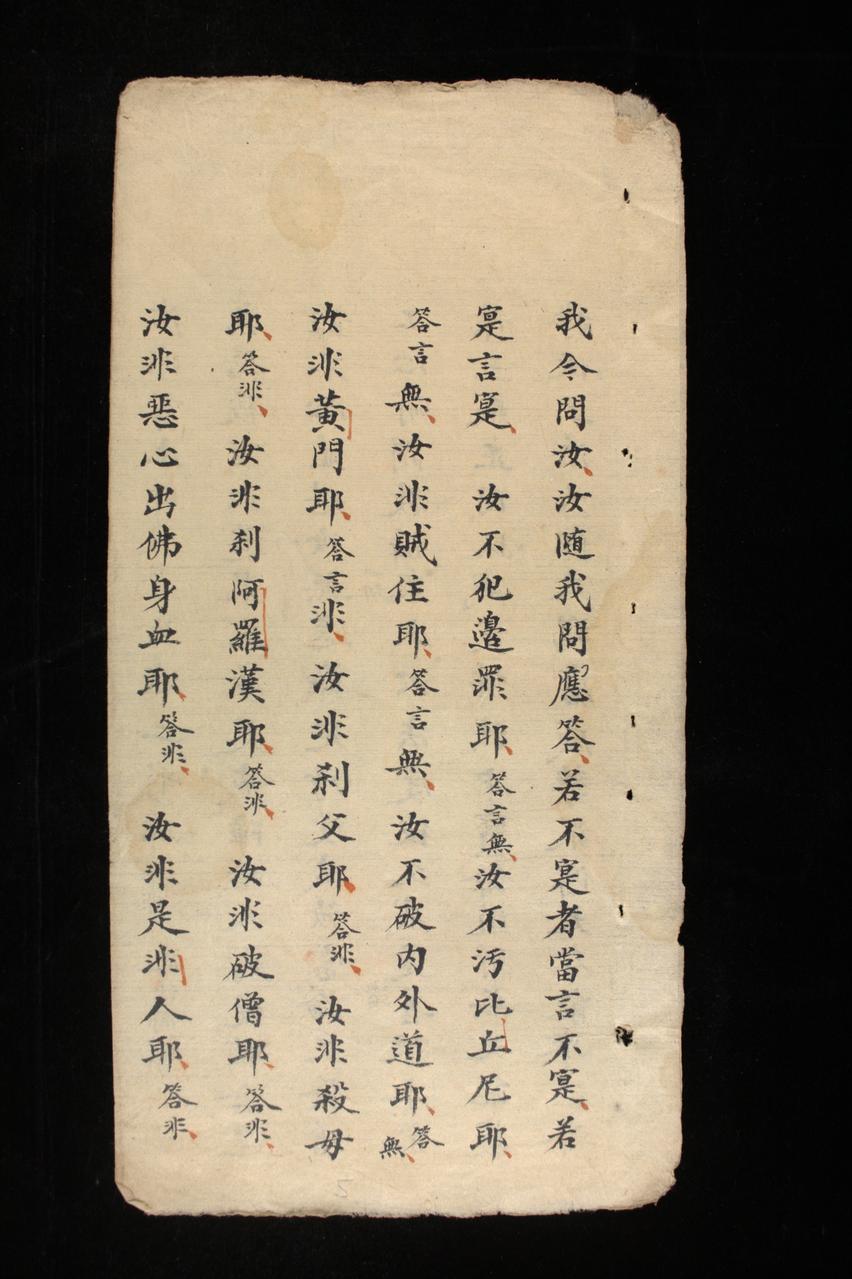 我今問汝汝随我問應答若不寔者當言不寔若
寔言寔 汝不犯邊罪耶答言無汝不污比丘尼耶
答言無汝非賊住耶答言無汝不破内外道耶答無
汝非黄門耶答言非汝非刹父耶答非 汝非殺母
耶答非 汝非刹阿羅漢耶答非 汝非破僧耶答非
汝非惡心出佛身血耶答非 汝非是非人耶答非